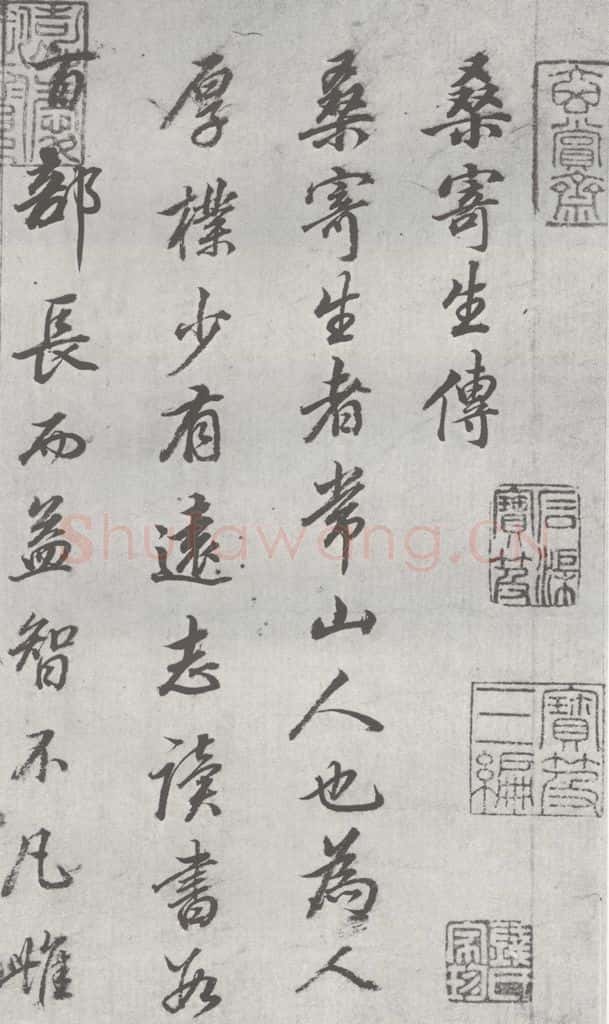 桑寄生傳
桑寄生者常山人也為人
厚樸少有遠志讀書數
百部長而益智不凡雖
寶笈
三編
Shufawang.CN